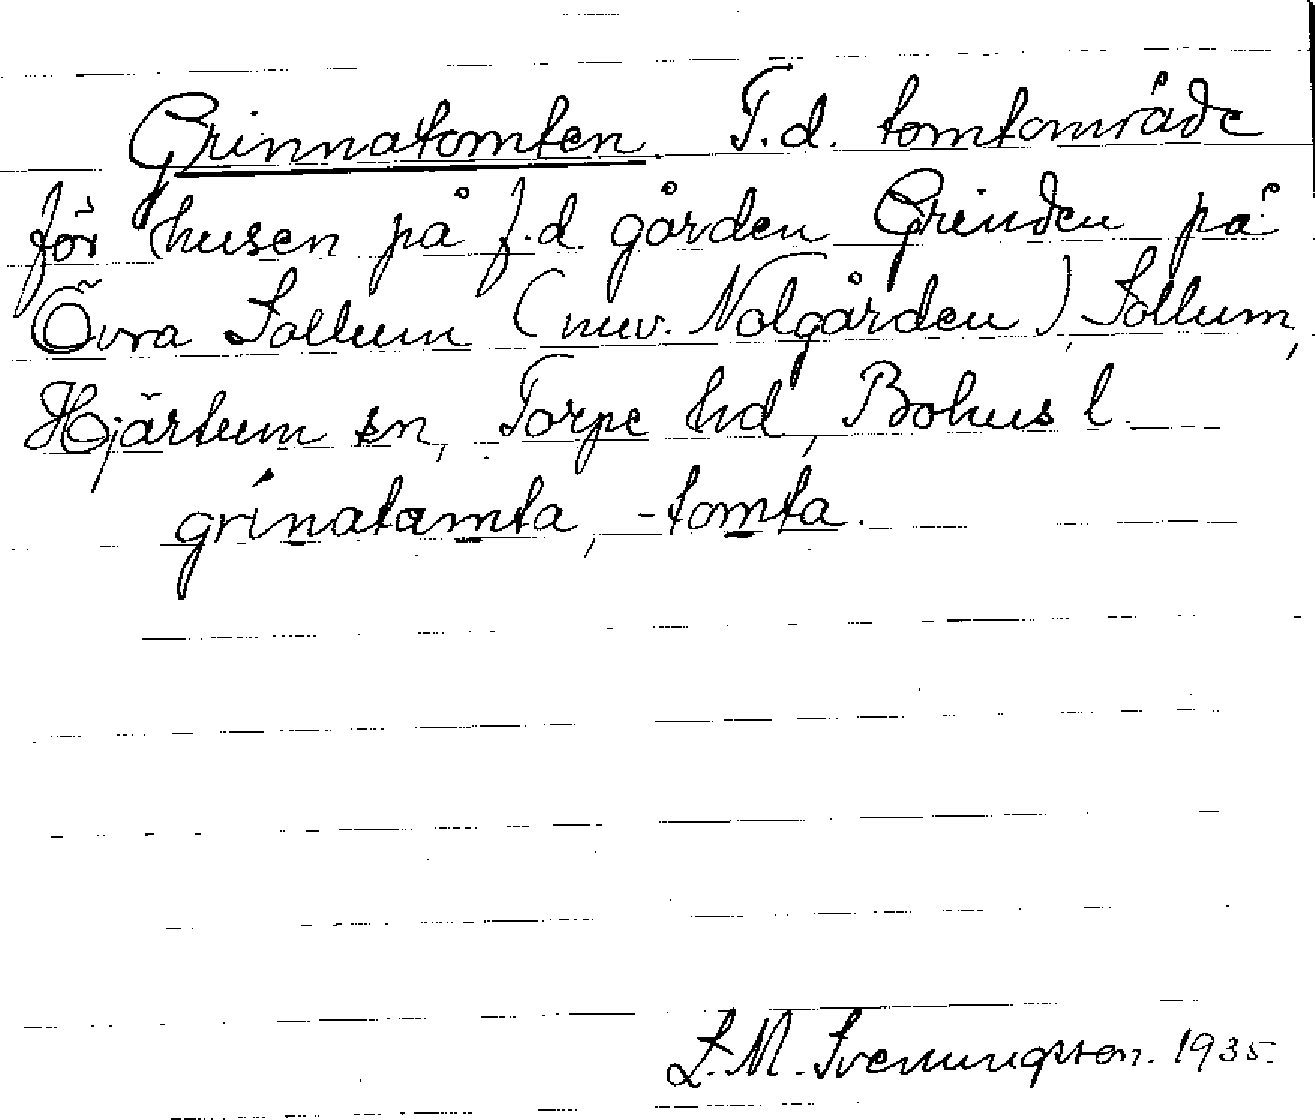 Grinnatomten. F.d. tomtområde
för husen på f.d. gården Grinden på
Övra Sollum (nuv. Nolgården), Sollum,
Hjärtum sn, Torpe hd, Bohus l.
grínatamta, -tomta.
S. M. Svenungsson. 1935.